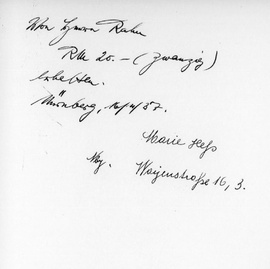 Von Herrn Rahn
RM 20.- (zwanzig)
erhalten.
Nürnberg, 10/4/37.
Marie Heß
Nbg. Wayenstraße 16, 3.